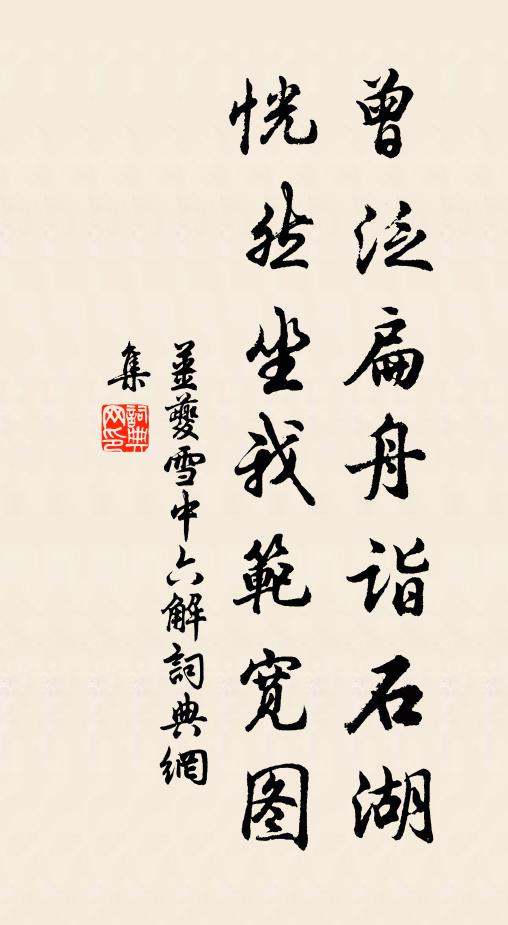 曾泛扁舟詣石湖
恍然坐我範寬图
姜夔雪中六解詞典網
集
詞典网印